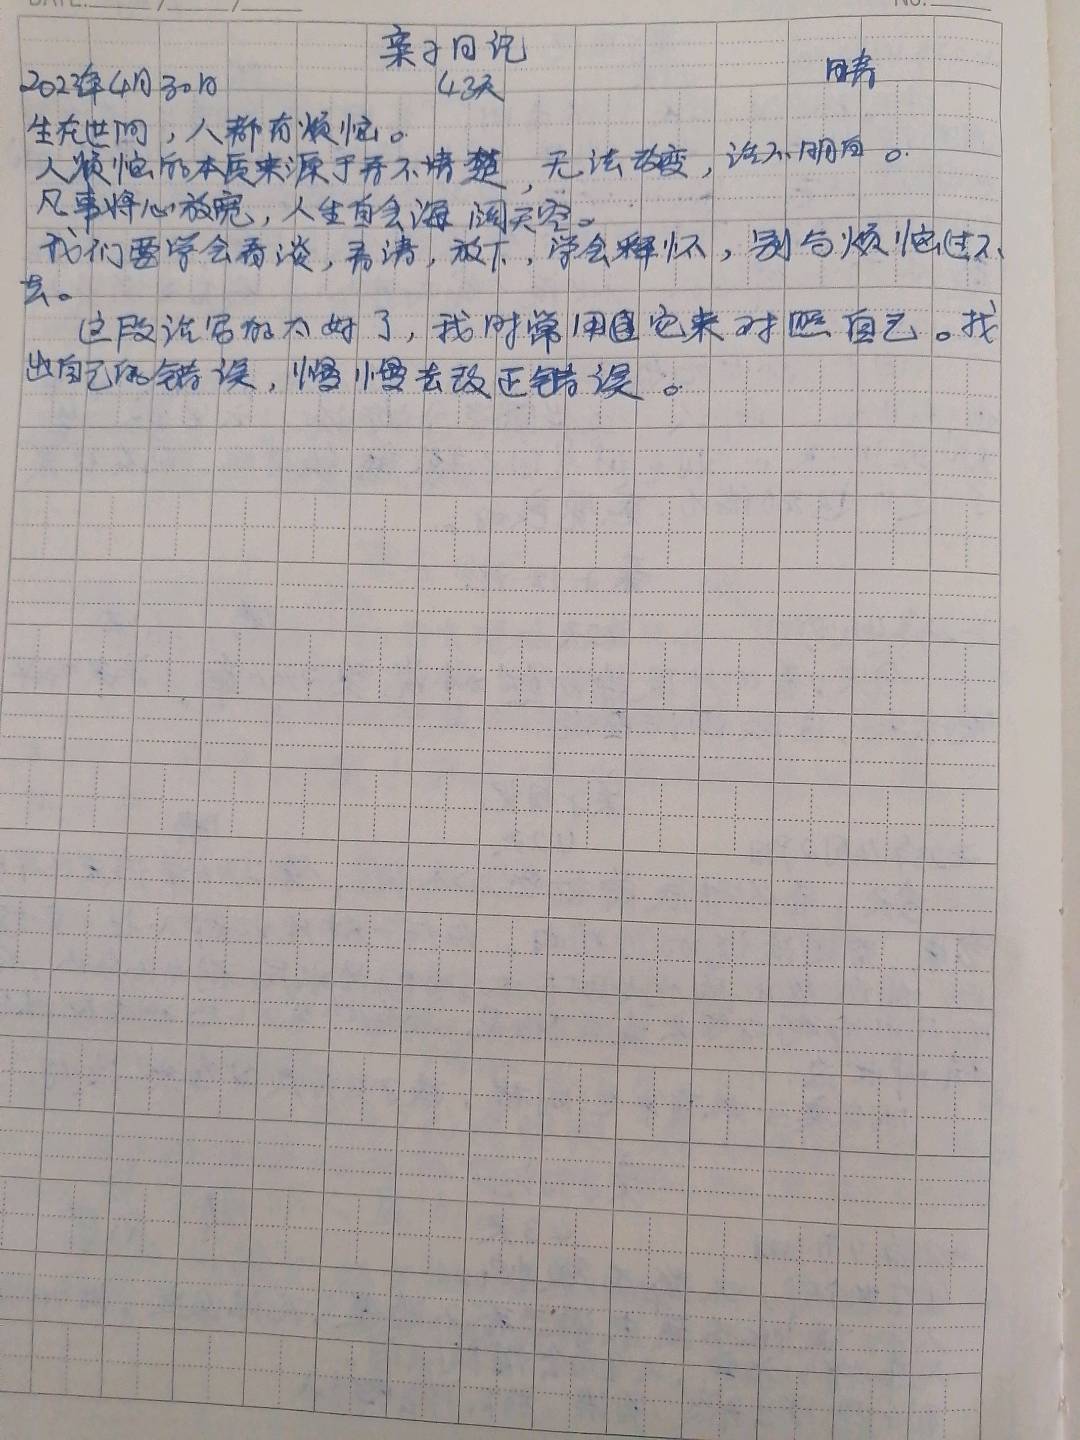 DATE: / /
NO.
亲子日记
2023年4月30日 43天 晴
生在世间，人都有烦恼。
人烦恼的本质来源于弄不清楚，无法改变，说不明白。
凡事将心放宽，人生自会海阔天空。
我们要学会看淡，看清，放下，学会释怀，别与烦恼过不
去。
这段话写的太好了，我时常用它来对照自己。找
出自己的错误，慢慢去改正错误。